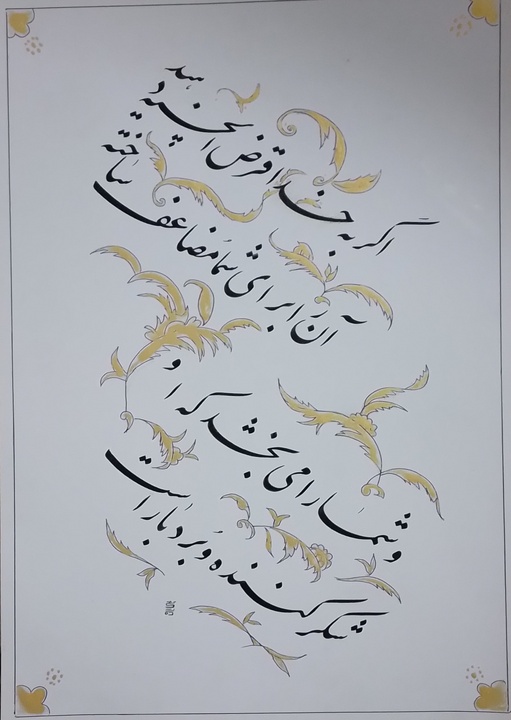 اگر به خدا قرض الحسنه دهید
آن را برای شما مضاعف ساخته
و شما را می بخشد که او
شکر کننده و بردبار است